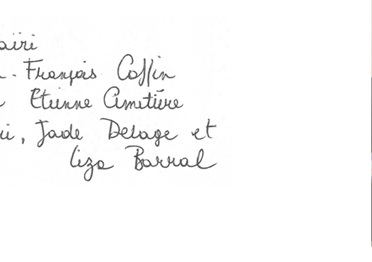 aïri
- François Coffin
Etienne Cimetière
, Jade Delage et
Liza Barral